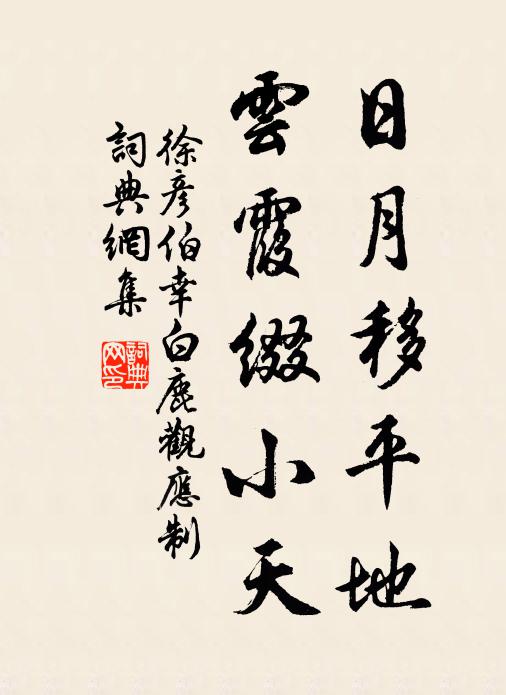 日月移平地
雲霞綴小天
徐彥伯幸白鹿觀應制
詞典網集
詞典网印